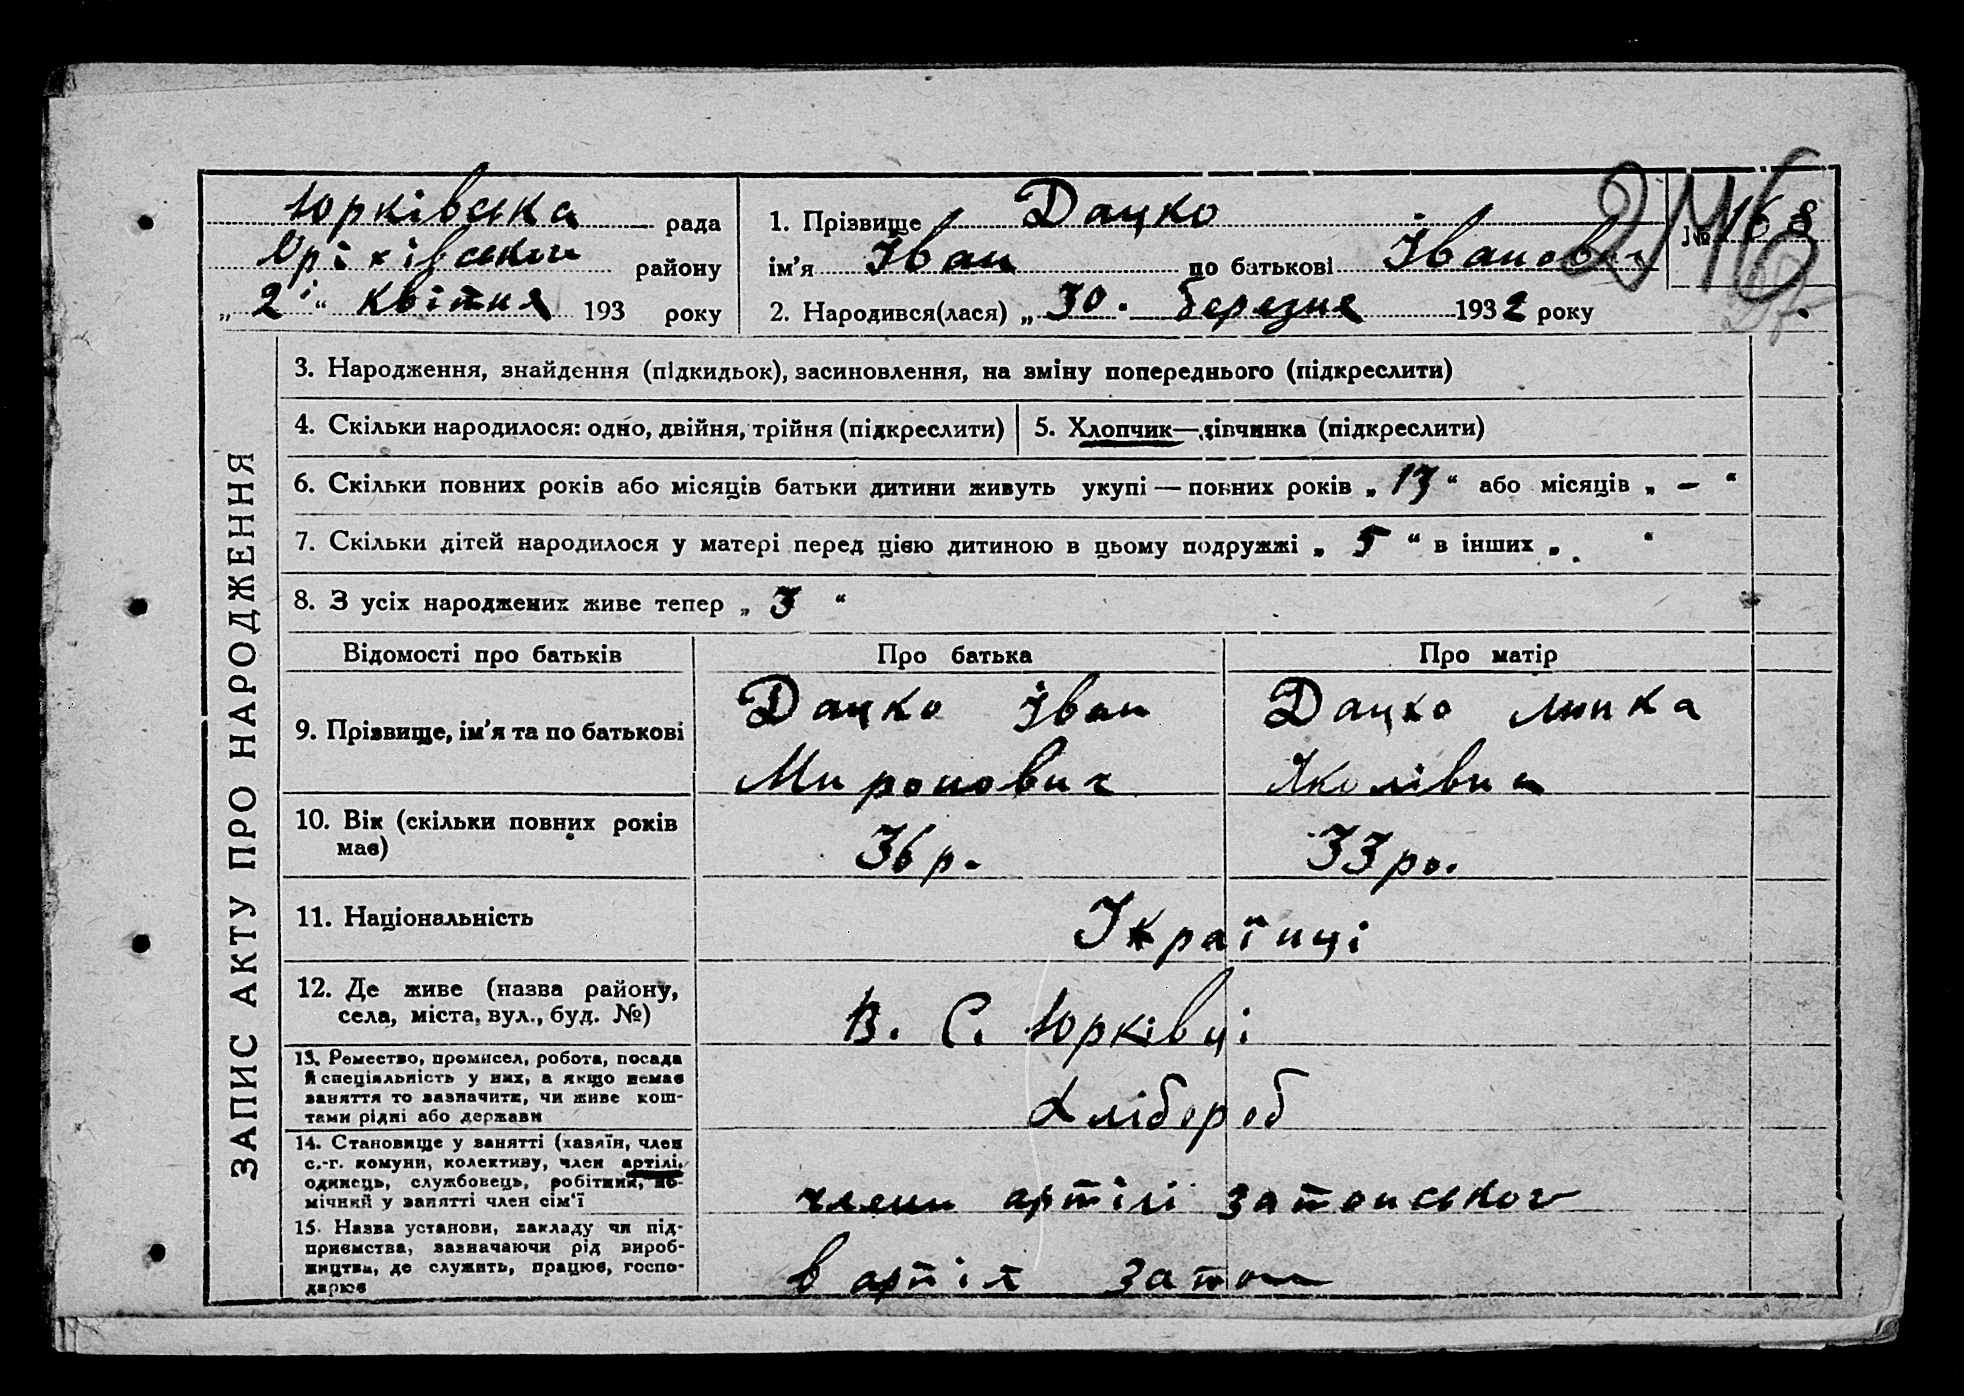 Юрківська рада
Оріхівського району
„ 2 “ квітня 193 року
1. Прізвище Дацко
ім'я Іван по батькові Іванович
№ 168
2. Народився(лася) „ 30. березня 1932 року
ЗАПИС АКТУ ПРО НАРОДЖЕННЯ
3. Народження, знайдення (підкидьок), засиновлення, на зміну попереднього (підкреслити)
4. Скільки народилося: одно, двійня, трійня (підкреслити)
5. Хлопчик—дівчинка (підкреслити)
6. Скільки повних років або місяців батьки дитини живуть укупі — повних років „ 13 “ або місяців „ – “
7. Скільки дітей народилося у матері перед цією дитиною в цьому подружжі „ 5 “ в інших „ “
8. З усіх народжених живе тепер „ 3 “
Відомості про батьків Про батька Про матір
9. Прізвище, ім'я та по батькові
Дацко Іван
Миронович
Дацко
10. Вік (скільки повних років
має)
36 р.
33 ро.
11. Національність
Українці
12. Де живе (назва району,
села, міста, вул., буд. №)
В. С. Юрківці
13. Ремество, промисел, робота, посада
й спеціяльність у них, а якщо немає
заняття то зазначити, чи живе кош-
тами рідні або держави
Хлібороб
14. Становище у занятті (хазяїн, член
с.-г. комуни, колективу, член артілі,
одинець, службовець, робітник, по-
мічний у занятті член сім'ї
члени артілі
15. Назва установи, закладу чи під-
приємства, зазначаючи рід вироб-
ництва, де служить, працює, госпо-
дарює
в артіл